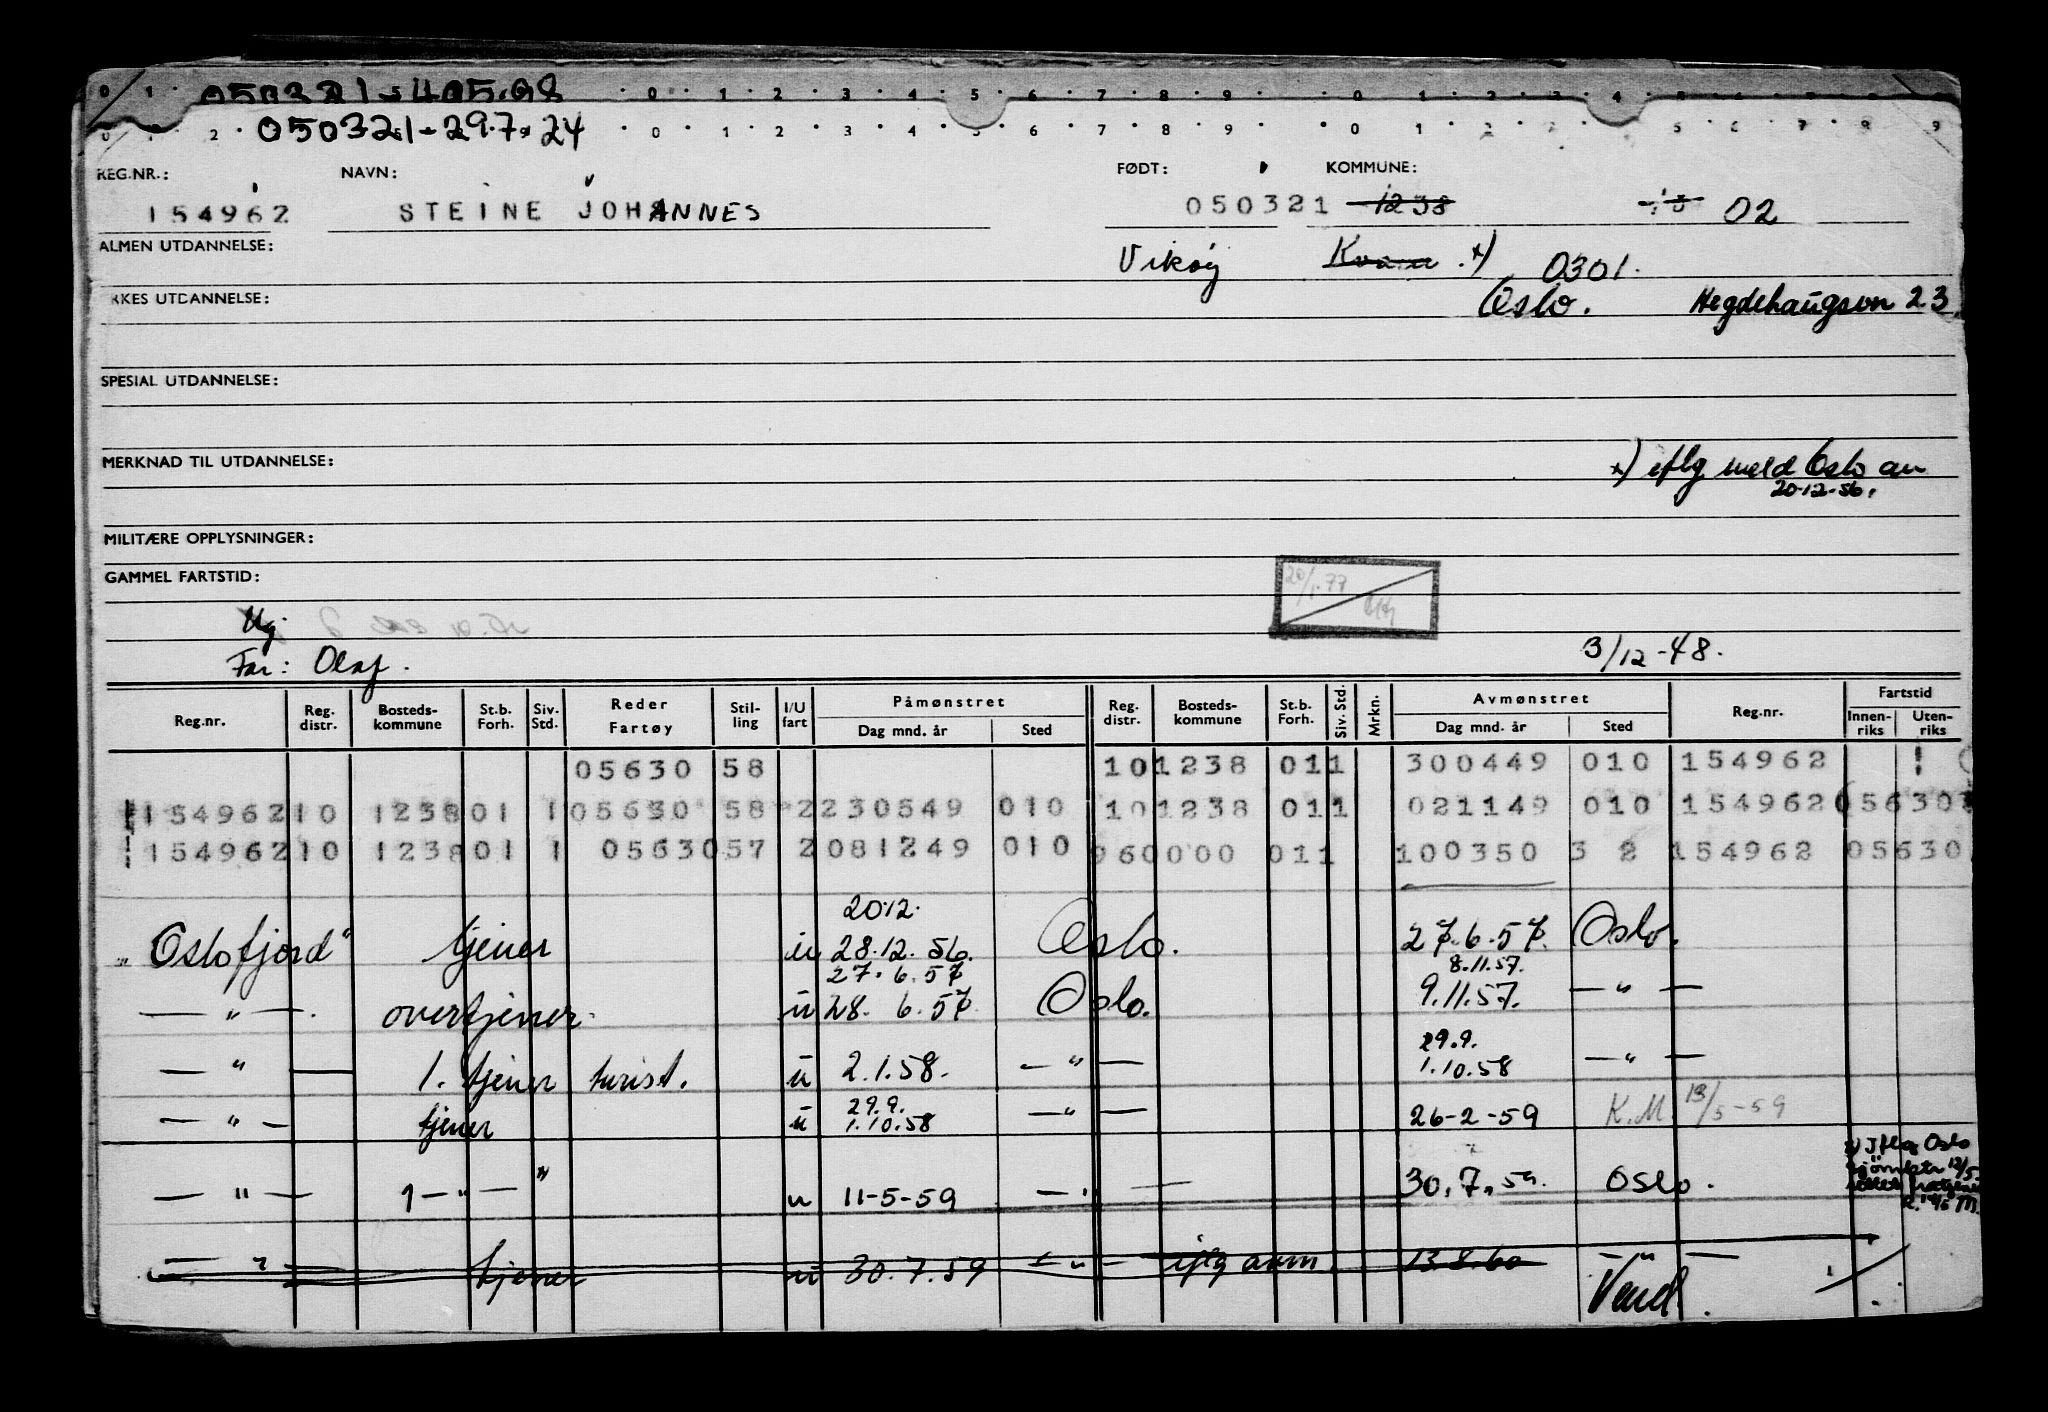 050321-405.08
0 1 0 1 2 3 4 5 6 7 8 9 0 1 2 3 4 5
050321-297.24
0 2 0 1 2 3 4 5 6 7 8 9 0 1 2 5 6 7 8 9
REG.NR.: NAVN: FØDT: KOMMUNE:
154962 STEINE JOHANNES 050321 1238 02
ALMEN UTDANNELSE: Vikøy Kvam x) 0301.
RKES UTDANNELSE: Oslo. Hegdehaugsvn 23
SPESIAL UTDANNELSE:
MERKNAD TIL UTDANNELSE: x) iflg meld Oslo au
20.12.56.
MILITÆRE OPPLYSNINGER:
GAMMEL FARTSTID: 20/1.77
Ug.
Far: Olaf. 3/12-48.
Reg.nr. Reg. distr. Bosteds-kommune St.b. Forh. Siv. Std. Reder Fartøy Stil-ling I/U fart Påmønstret Dag mnd. år Sted Reg. distr. Bosteds-kommune St.b. Forh. Siv. Std. Mrkn. Avmønstret Dag mnd. år Sted Reg.nr. Fartstid Innen-riks Uten-riks
05630 58 10 1238 01 1 300449 010 154962
154962 10 1238 01 1 05630 58 2 230549 010 10 1238 01 1 021149 010 154962 05630
154962 10 1238 01 1 05630 57 2 081249 010 960000 01 1 100350 3 2 154962 05630
20.12.
"Oslofjord" tjener u 28.12.56. Oslo. 27.6.57. Oslo.
27.6.57 8.11.57.
— " — overtjener u 28.6.57 Oslo. 9.11.57. — " —
29.9.
— " — 1. tjener turist. u 2.1.58. — " — 1.10.58 — " —
29.9.
— " — tjener u 1.10.58 — " — 26-2-59 K.M. 13/5-59
x) Iflg Oslo
— " — 1 — " — " u 11-5-59 — " — 30.7.59. Oslo.
— " — tjener u 30.7.59 — " — iflg avm 13.8.60 — " —
Vend.